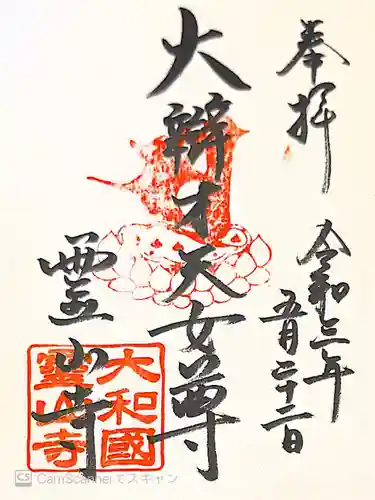 奉拝
令和三年
五月二十二日
大辯才天女尊
霊山寺
大和國
霊山寺
CS CamScannerでスキャン